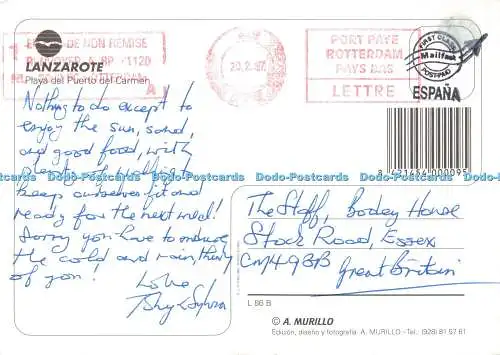 LANZAROTE
Playa del Puerto del Carmen
DE NON REMISE
1120
A
20.2.97
PORT PAYE
ROTTERDAM
PAYS BAS
LETTRE
FIRST CLASS
Mailfast
POSTPAID
ESPAÑA
8 421454 000095
Nothing to do except to
enjoy the sun, sand,
and good food, with
plenty of
keep ourselves fit and
ready for the next
Sorry you have to endure
the cold and rain, think
of you!
Love
Sylvia
The Staff, Boday House
Stock Road, Essex
CM4 9BB
Great Britain
Dodo-Postcards Dodo-Postcards Dodo-Postcards
L 86 B
© A. MURILLO
Edición, diseño y fotografía: A. MURILLO - Tel.: (928) 81 57 61